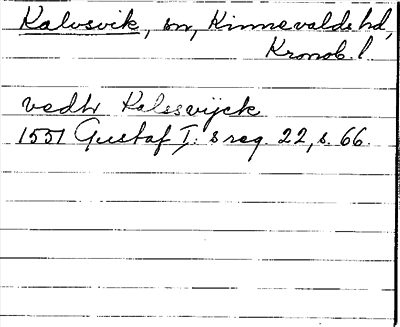 Kalvsvik, sn, Kinnevalds hd,
Kronob. l
vedh Kalssvijck
1551 Gustaf I:s reg. 22, s. 66.